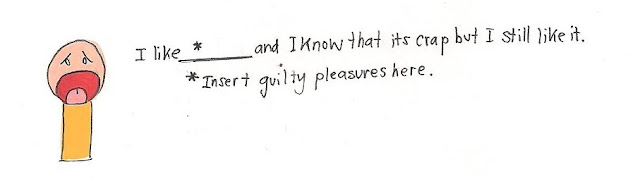 I like *______ and I know that its crap but I still like it.
*Insert guilty pleasures here.